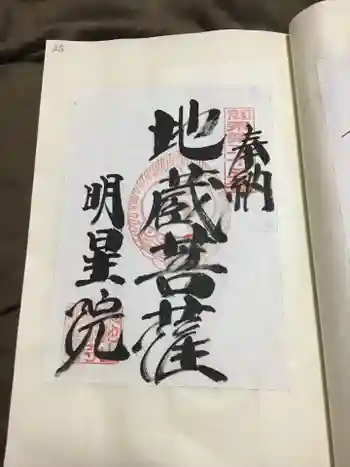 奉納
地蔵菩薩
明星院
25